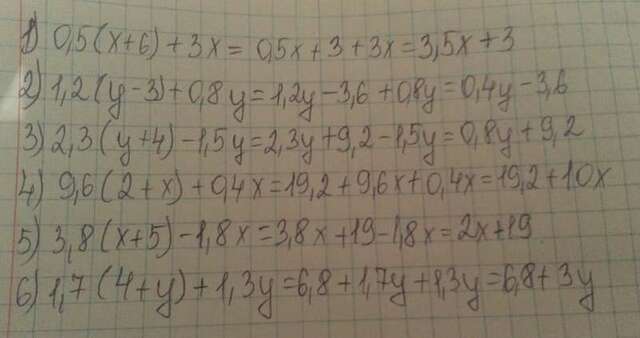 1) 0,5(x+6)+3x= 0,5x+3+3x=3,5x+3
2) 1,2(y-3)+0,8y=1,2y-3,6+0,8y=0,4y-3,6
3) 2,3(y+4)-1,5y=2,3y+9,2-1,5y=0,8y+9,2
4) 9,6(2+x)+0,4x=19,2+9,6x+0,4x=19,2+10x
5) 3,8(x+5)-1,8x=3,8x+19-1,8x=2x+19
6) 1,7(4+y)+1,3y=6,8+1,7y+1,3y=6,8+3y